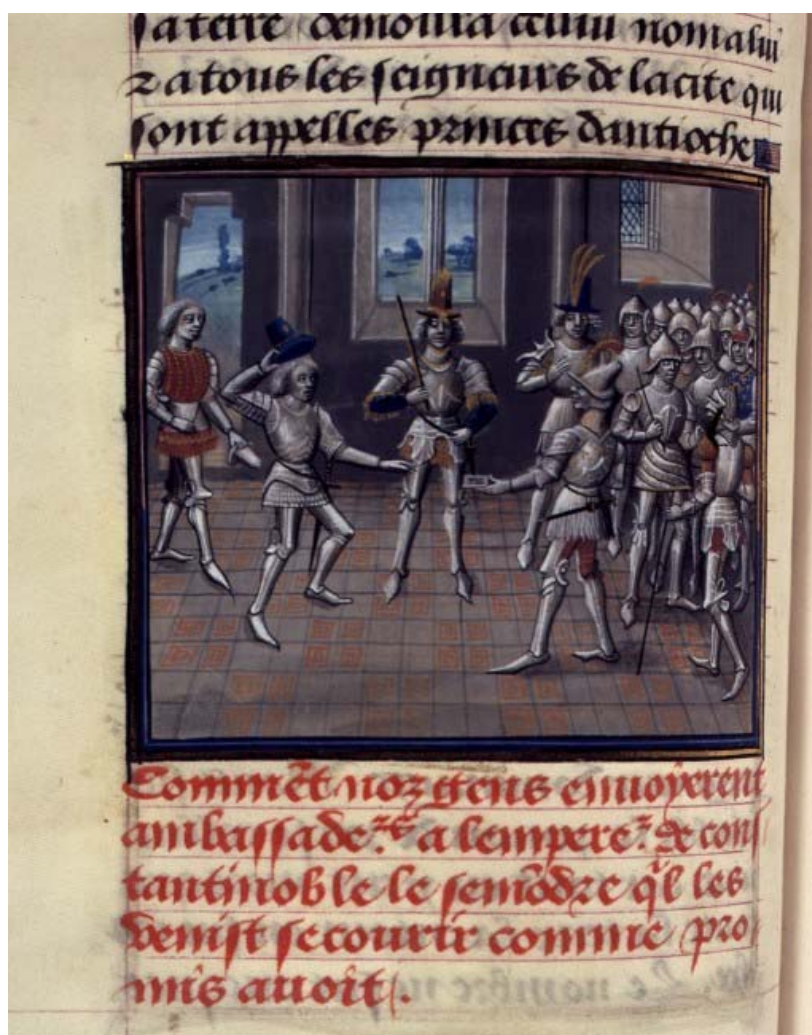 sa terre demoura cellui nom a lui
⁊ a tous les seigneurs de la cite qui
sont appelles princes dantioche
Commēt noz gens enuoyerent
ambassade a lempere² de cons
tantinoble le semōdre q̄l les
venist secourir comme pro
mis auoit.